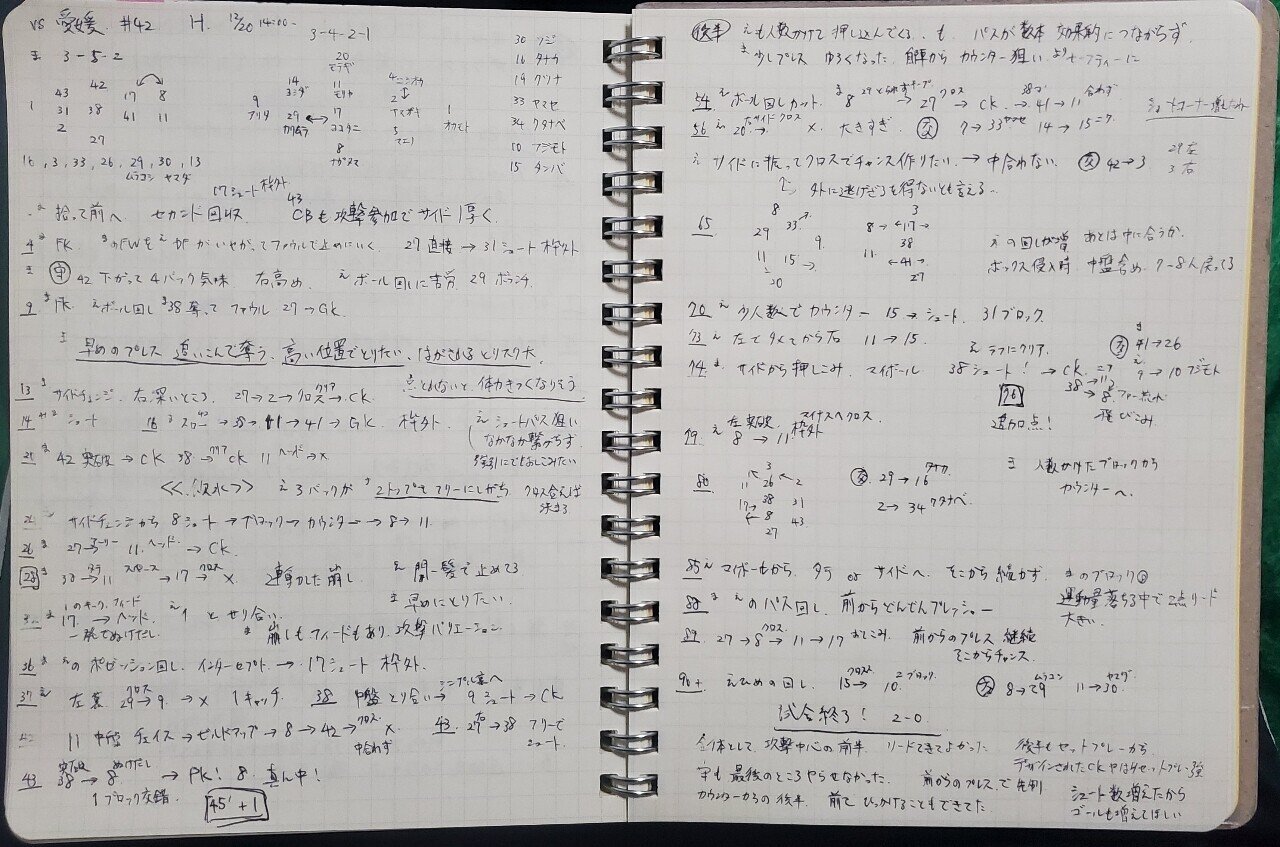 vs 愛媛 #42 H. 12/20 14:00-
3-4-2-1
ま 3-5-2
20
42
43 17 8
14 11
9 29 17 1
1 31 38 41 11
2
27
8
16, 3, 33, 26, 29, 30, 13
ムラコシ ヤマダ
30 フジ
16 タナカ
19 クツナ
33 ヤマセ
34 クタナベ
10 フジモト
15 タンバ
17シュート枠外
拾って前へ セカンド回収 CBも攻撃参加でサイド厚く
4 FK. 27 直接→31シュート枠外
42 下がって4バック気味 右高め. えボール回しに苦労 29 ボランチ
9 FK えボール回し 38 奪って ファウル 27→GK.
早めのプレス 追いこんで奪う. 高い位置でとりたい. はがされるとリスク大
13 サイドチェンジ 右深いところ. 27→2→クロス→クリア CK.
点とれないと、体力きつくなりそう
14 シュート 16 スロー→38→11→41→GK. 枠外.
え シュートパス狙い
なかなか繋がらず.
強引にでもおしこみたい
21 42 突破→CK 38→クリア CK 11 ヘッド→×
<<飲水>> え3バックが 2トップをフリーにしがち
クロス合えば
決まる
サイドチェンジから 8シュート→ブロック→カウンター→8→11.
26 27→アーリー 11.ヘッド.→CK.
28 38→11→スペース→17→クロス×. 連動した崩し え 間一髪で止めてる
ま 早めにとりたい.
1のキック、フィード
17.→ヘッド. え1とせり合い.
一発でぬけだし
崩しもフィードもあり、攻撃バリエーション.
36 えのポゼッション回し インターセプト→17シュート 枠外.
37 え 左裏 29→クロス 9→× 1キャッチ 38 中盤とり合い→シンプル裏へ 9シュート→CK
42 11 中盤 チェイス→ビルドアップ→8→42→クロス× 中合わず
43. 27→38 フリーで
シュート.
43 突破 38→ぬけだし 8. →PK! 8. 真ん中!
1ブロック交錯.
45'+1
後半 えも人数かけて押し込んでくる. も、パスが数本 効果的につながらず.
ま 少しプレス ゆるくなった. 自陣からカウンター狙い よりセーフティーに
54 えボール回しカット. 8→27→クロス CK.→41→11 合わず
ショートコーナー
56 え 20→サイドクロス × 大きすぎ. 交 7→33ヤマセ 14→15
え サイドに振ってクロスでチャンス作りたい→中合わない. 交 42→3
29左
3右
外に逃げざるを得ないとも言える..
65
8 33
29 9.
11 15→
20
3
8←17→
38
11. ←41→
27
えの回しが増 あとは中に合うか.
ボックス侵入時 中盤含め、7-8人戻ってる
70 え 少人数でカウンター 15→シュート. 31ブロック.
73 え 左で多くてから右 11→15.
えラフにクリア. 交 41→26
74 サイドから押しこみ. マイボール 38シュート!→CK.
9→10フジモト
76 38→11
→8.ファー流れ
飛びこみ
追加点!
79. え 左突破 8→11 マイナスへクロス 枠外
80
3
11 26 2
17 38 31
8 43
27
交 29→16 タナカ
2→34クタナベ.
ま 人数かけたブロックから
カウンターへ.
85 え マイボールから、タテ or サイドへ. そこから続かず. まのブロック◎
88 ま えのパス回し. 前からどんどんプレッシャー
運動量落ちる中で2点リード
大きい.
89. 27→8→クロス 11→17 おしこみ. 前からのプレス 継続
そこからチャンス.
90+ えひめの回し. 15→クロス 10. 2ブロック. 交 8→29 ムラコシ 11→30 ヤマダ
試合終了! 2-0.
全体として、攻撃中心の前半. リードできてよかった. 後半もセットプレーから.
デザインされたCK
守も最後のところやらせなかった. 前からのプレスで先制
カウンターからの後半. 前でひっかけることもできてた
シュート数増えたから
ゴールも増えてほしい